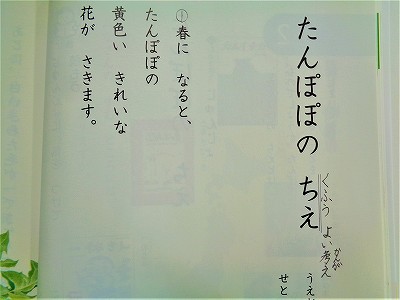 たんぽぽの ちえ
くふう よい考え
かんが
うえ
せと
①春に なると、
たんぽぽの
黄色い きれいな
花が さきます。